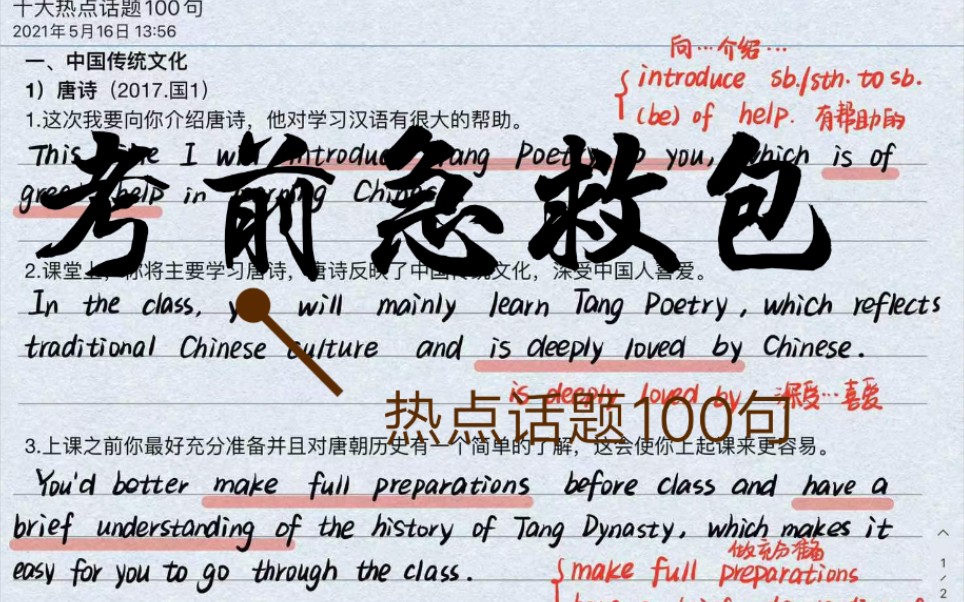 十大热点话题100句
2021年5月16日 13:56
一、中国传统文化
1）唐诗（2017.国1）
向…介绍…
introduce sb./sth. to sb.
(be) of help. 有帮助的
1.这次我要向你介绍唐诗，他对学习汉语有很大的帮助。
This I will introduce Tang Poetry to you, which is of
great help in learning Chinese
考前急救包
2.课堂上，你将主要学习唐诗，唐诗反映了中国传统文化，深受中国人喜爱。
In the class, you will mainly learn Tang Poetry, which reflects
traditional Chinese culture and is deeply loved by Chinese.
is deeply loved by 深受…喜爱
热点话题100句
3.上课之前你最好充分准备并且对唐朝历史有一个简单的了解，这会使你上起课来更容易。
You'd better make full preparations before class and have a
brief understanding of the history of Tang Dynasty, which makes it
easy for you to go through the class.
做充分准备
make full preparations
1/2